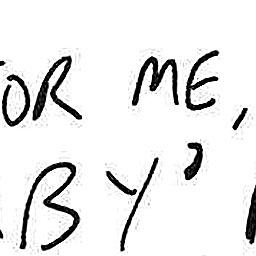 OR ME,
BY'